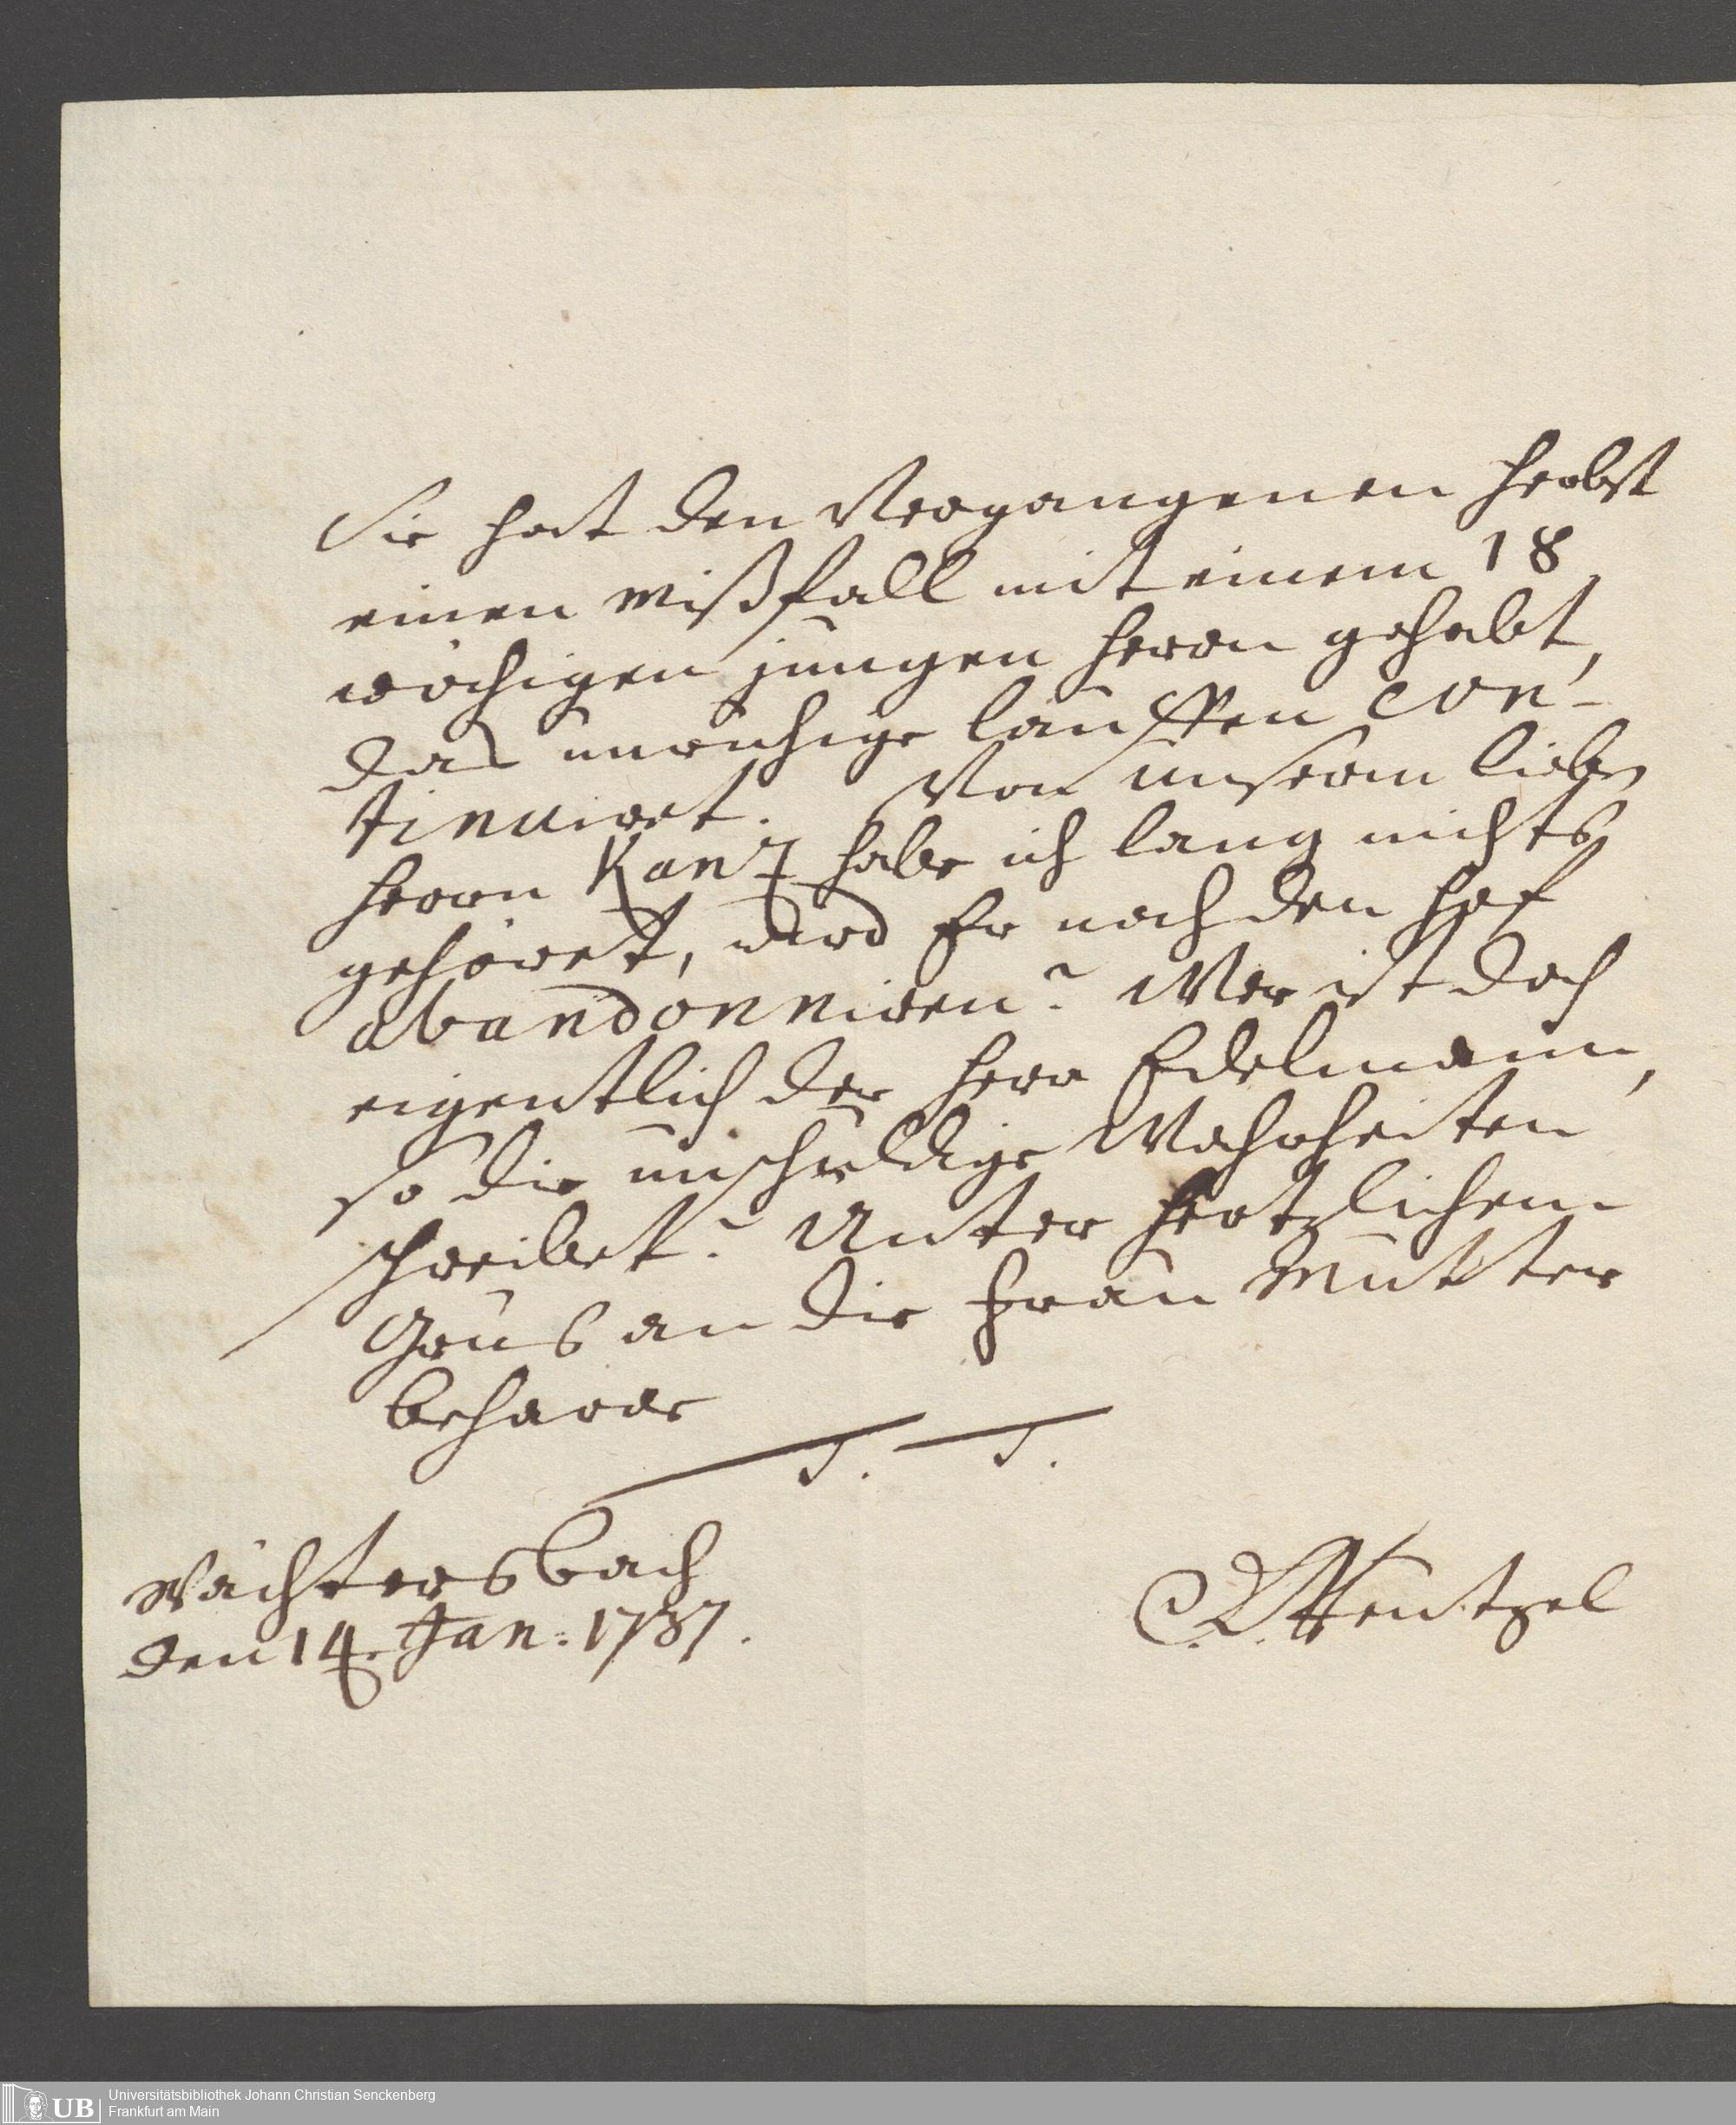 Sie hat den Vergangenen Herbst
einen Mißfall mit einem 18
wöchigen jungen Herrn gehabt,
das unruhige lauffen con-
tinuiret. Von unserm lieben
Herrn Kanz habe ich lang nichts
gehöret, wird Er noch den Hof
abandonniren? Wer ist doch
eigentlich der Herr Edelmann,
so die unschuldige Wahrheiten
schreibet? Unter hertzlichem
Grus an die Frau Mutter
beharre
T. T.
Wächtersbach
den 14. Jan: 1737.
C. D. Wentzel
UB Universitätsbibliothek Johann Christian Senckenberg
Frankfurt am Main